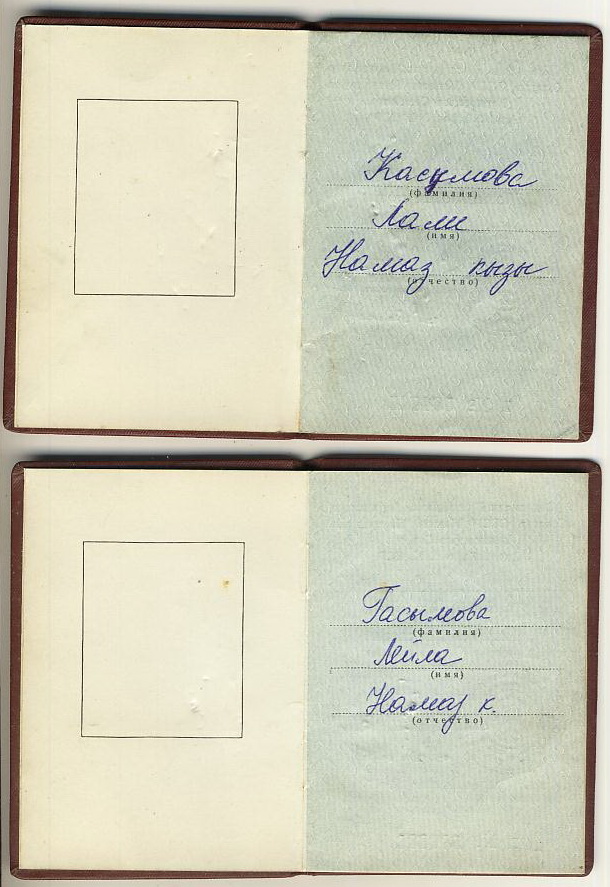 Касумова
(фамилия)
Лами
(имя)
Намаз кызы
(отчество)
Гасымова
(фамилия)
Лейла
(имя)
Намаз к.
(отчество)